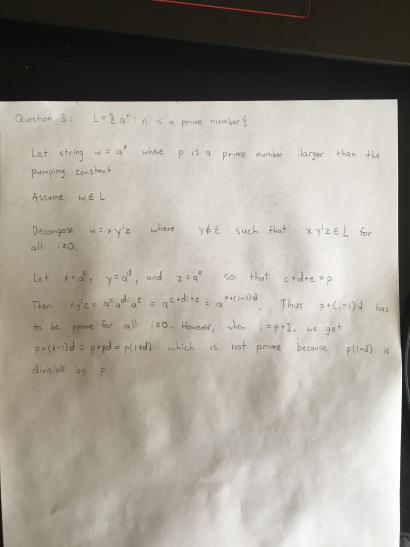 Question 3: L = { aⁿ : n is a prime number }
Let string w = aᵖ where p is a prime number larger than the
pumping constant
Assume w ∈ L
Decompose w = xyⁱz where y ∉ ε such that xyⁱz ∈ L for
all i≥0.
Let x = aᶜ, y = aᵈ, and z = aᵉ so that c+d+e = p
Then xyⁱz = aᶜaᵈⁱaᵉ = aᶜ⁺ᵈⁱ⁺ᵉ = aᵖ⁺⁽ⁱ⁻¹⁾ᵈ Thus p+(i-1)d has
to be prime for all i≥0. However, when i = p+1, we get
p+(i-1)d = p+pd = p(1+d) which is not prime because p(1+d) is
divisible by p.